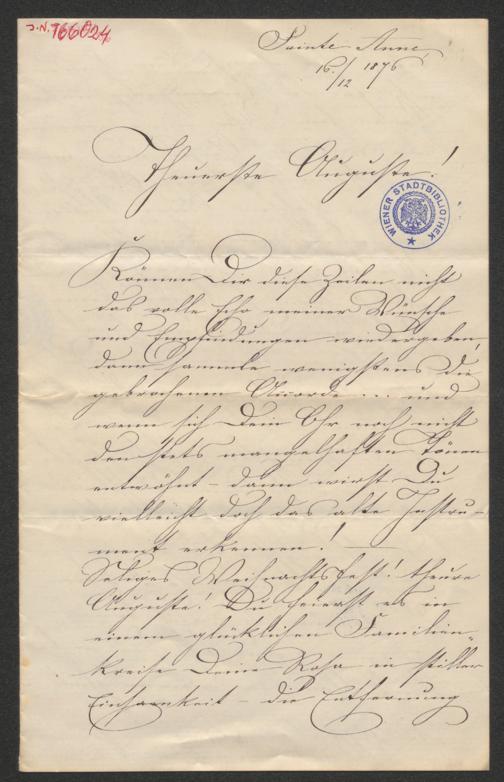 J.N. 166024
Sainte Anne,
16./12 1876
Theuerste Auguste!
WIENER STADTBIBLIOTHEK
Können Dir diese Zeilen nicht
das volle Echo meiner Wünsche
und Empfindungen wiedergeben,
dann sammle wenigstens die
gebrochenen Accorde ... und
wenn sich Dein Ohr noch nicht
den stets mangelhaften Tönen
entwöhnt – dann wirst Du
vielleicht doch das alte Instru-
ment erkennen! —
Seliges Weihnachtsfest! theure
Auguste! Du feierst es in
einem glücklichen Familien-
kreise Deine Rosa in stiller
Einsamkeit – die Entfernung